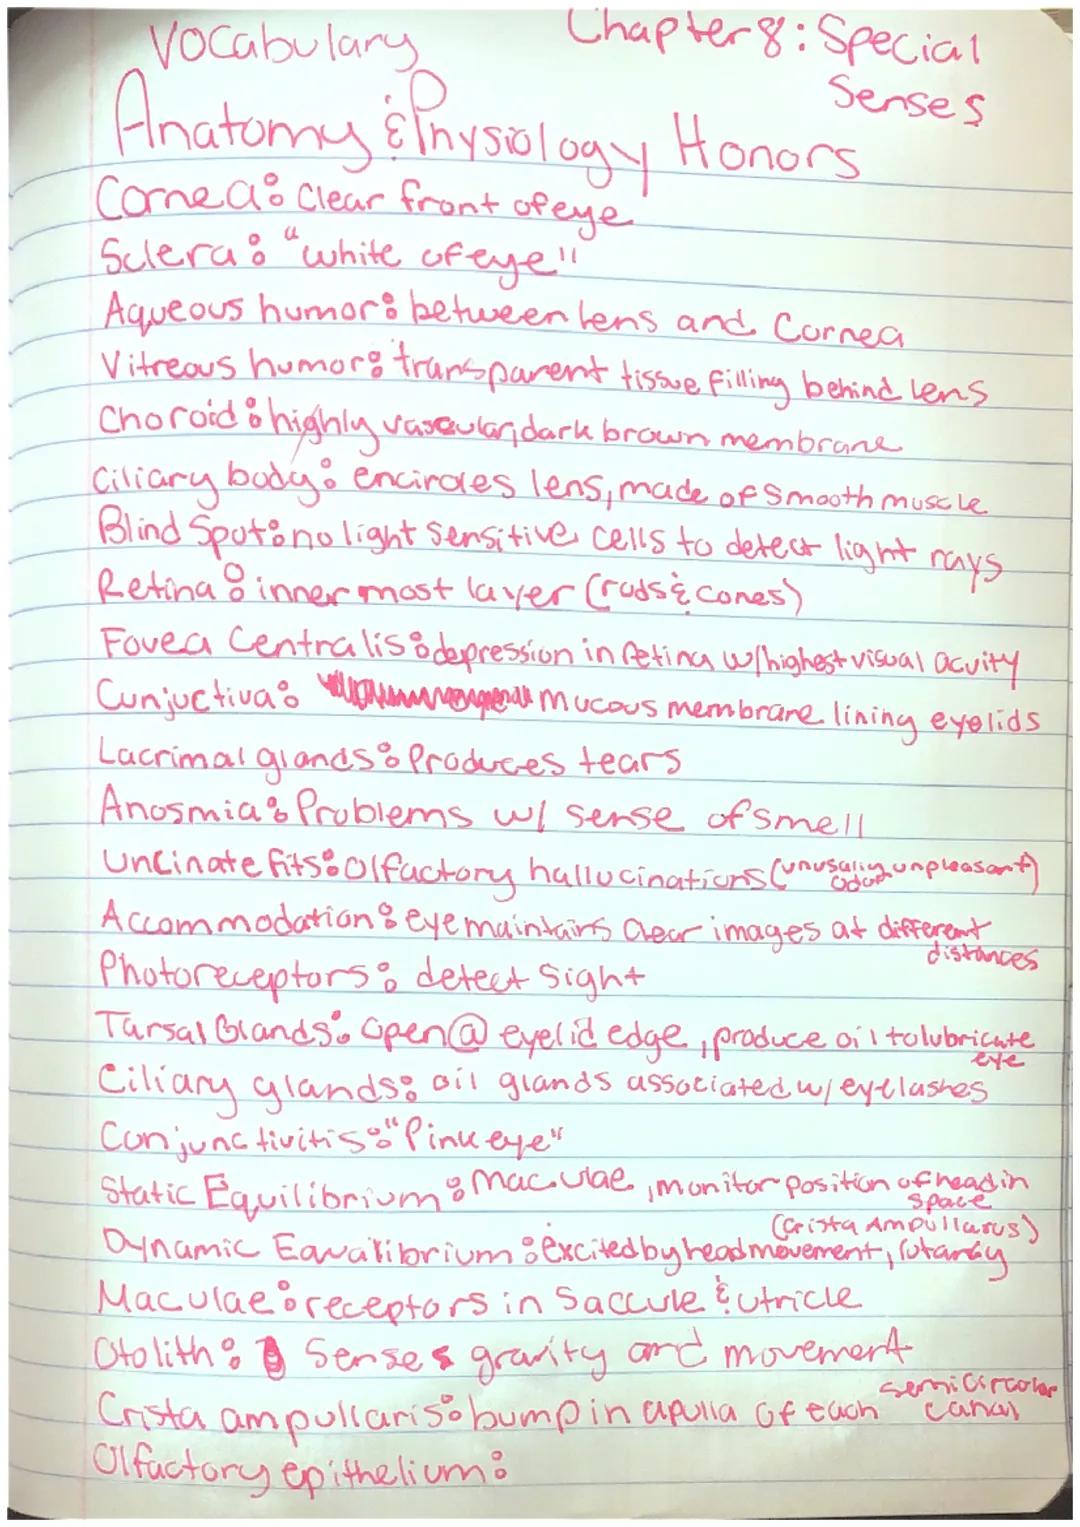 Vocabulary
Chapter 8: Special
Senses
Anatomy & Physiology Honors
Cornea: Clear front of eye
Sclera: "white of eye"
Aqueous humor: between lens and Cornea
Vitreous humor: transparent tissue filling behind lens
Choroid: highly vascular, dark brown membrane
Ciliary body: encircles lens, made of smooth muscle
Blind Spot: no light sensitive cells to detect light rays
Retina: inner most layer (rods & cones)
Fovea Centralis: depression in retina w/ highest visual acuity
Cunjuctiva: mucous membrane lining eyelids
Lacrimal glands: Produces tears
Anosmia: Problems w/ sense of smell
Uncinate fits: Olfactory hallucinations (unusually unpleasant)
odor
Accommodation: eye maintains clear images at different
distances
Photoreceptors: detect sight
Tarsal Glands: Open @ eyelid edge, produce oil to lubricate
eye
Ciliary glands: oil glands associated w/ eyelashes
Conjunctivitis: "Pink eye"
Static Equilibrium: Maculae, monitor position of head in
space
(Crista Ampullarus)
Dynamic Equailibrium: excited by head movement,
Maculae: receptors in Saccule & utricle
Otolith: Senses gravity and movement
semicircular
Crista ampullaris: bump in apulla of each canal
Olfactory epithelium: